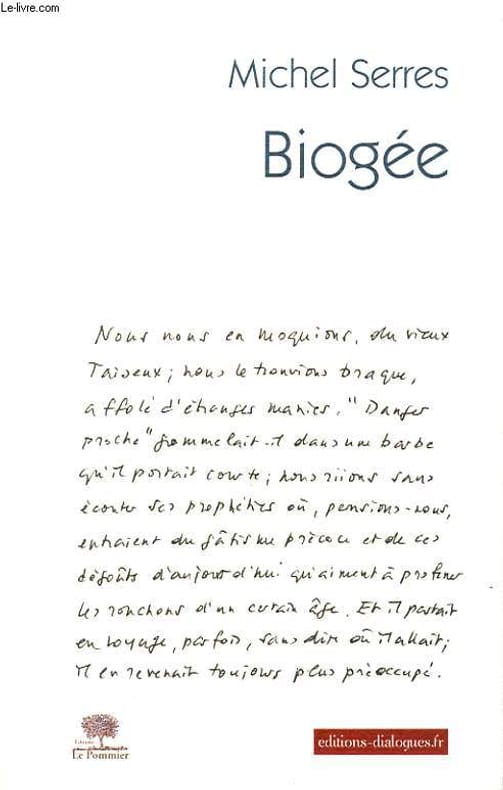 Le-livre.com
Michel Serres
Biogée
Nous nous en moquions, du vieux
Taiseux ; nous le trouvions braque,
affolé d'étranges manies. "Danger
proche" grommelait-il dans une barbe
qu'il portait courte ; nous riions sans
écouter ses prophéties où, pensions-nous,
entraient du gâtisme précoce et de ces
dégoûts d'aujourd'hui qu'aiment à proférer
les ronchons d'un certain âge. Et il partait
en voyage, parfois, sans dire où il allait ;
il en revenait toujours plus préoccupé.
Éditions
Le Pommier
editions-dialogues.fr